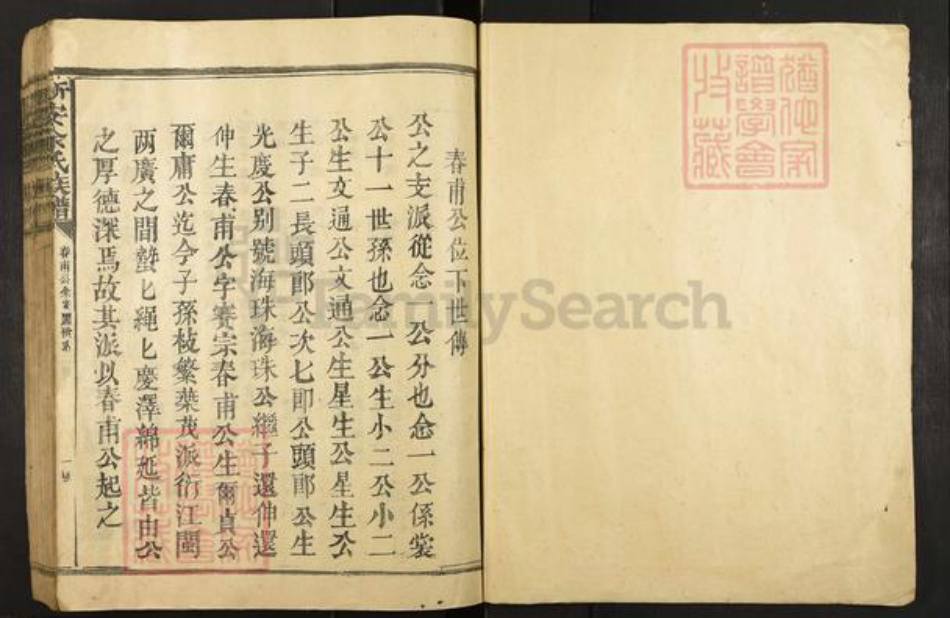 猶他家
譜學會
收藏
春甫公位下世傳
公之支派從念一公分也念一公係裳
公十一世孫也念一公生小二公小二
公生文通公文通公生星生公星生公
生子二長頭郎公次七郎公頭郎公生
光慶公別號海珠海珠公繼子還伸還
伸生春甫公字賽宗春甫公生爾貞公
爾庸公迄今子孫枝繁葉茂派衍江閩
两廣之間蟄匕繩匕慶澤綿延皆由公
之厚德深焉故其派以春甫公起之
新安余氏族譜
FamilySearch